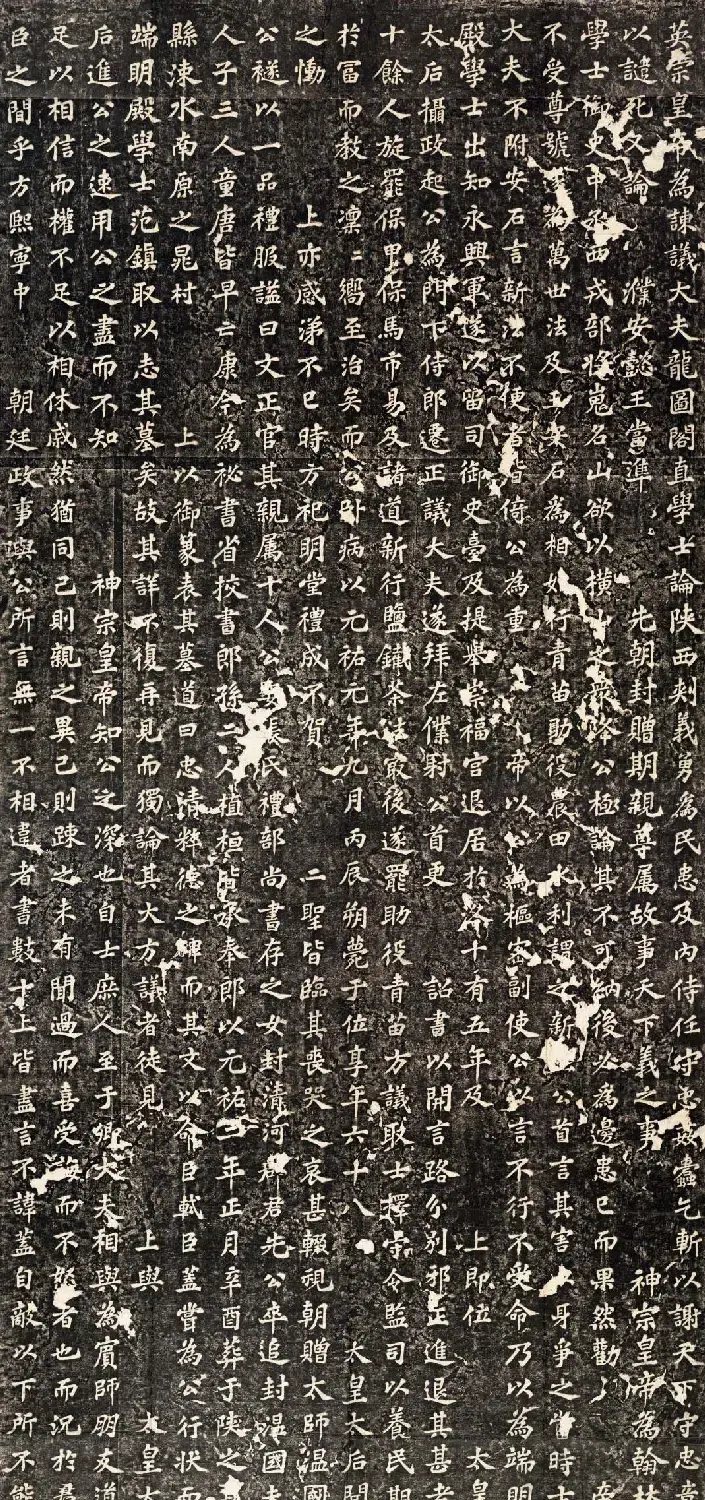 英宗皇帝為諫議大夫龍圖閣直學士論陝西刺義勇為民患及內侍任守忠姦蠹乞斬以謝天下守忠竟
以譴死又論 濮安懿王當準 先朝封贈期親尊屬故事天下義之事 神宗皇帝為翰林
學士御史中丞西戎部將嵬名山欲以橫山之眾降公極論其不可納後必為邊患已而果然勸
不受尊號遂為萬世法及王安石為相始行青苗助役農田水利謂之新法公首言其害以身爭之當時士
大夫不附安石言新法不便者皆倚公為重 帝以公為樞密副使公以言不行不受命乃以為端明
殿學士出知永興軍遂以留司御史臺及提舉崇福宮退居於洛十有五年及 上即位 太皇
太后攝政起公為門下侍郎遷正議大夫遂拜左僕射公首更 詔書以開言路分別邪正進退其甚者
十餘人旋罷保甲保馬市易及諸道新行鹽鐵茶法最後遂罷助役青苗方議取士擇守令監司以養民期
於富而教之凜〻嚮至治矣而公臥病以元祐元年九月丙辰朔薨于位享年六十八 太皇太后聞
之慟 上亦感涕不已時方祀明堂禮成不賀 二聖皆臨其喪哭之哀甚輟視朝贈太師溫國
公襚以一品禮服諡曰文正官其親屬十人公娶張氏禮部尚書存之女封清河郡君先公卒追封溫國夫
人子三人童唐皆早亡康今為祕書省挍書郎孫二人植桓皆承奉郎以元祐二年正月辛酉葬于陝之
縣涑水南原之晁村 上以御篆表其墓道曰忠清粹德之碑而其文以命臣軾臣蓋嘗為公行狀而
端明殿學士范鎮取以志其墓矣故其詳不復再見而獨論其大方議者徒見 上與 太皇太
后進公之速用公之盡而不知 神宗皇帝知公之深也自士庶人至于卿大夫相與為賓師朋友道
足以相信而權不足以相休戚然猶同己則親之異己則疎之未有聞過而喜受誨而不怒者也而況於君
臣之間乎方熙寧中 朝廷政事與公所言無一不相違者書數十上皆盡言不諱蓋自敵以下所不能